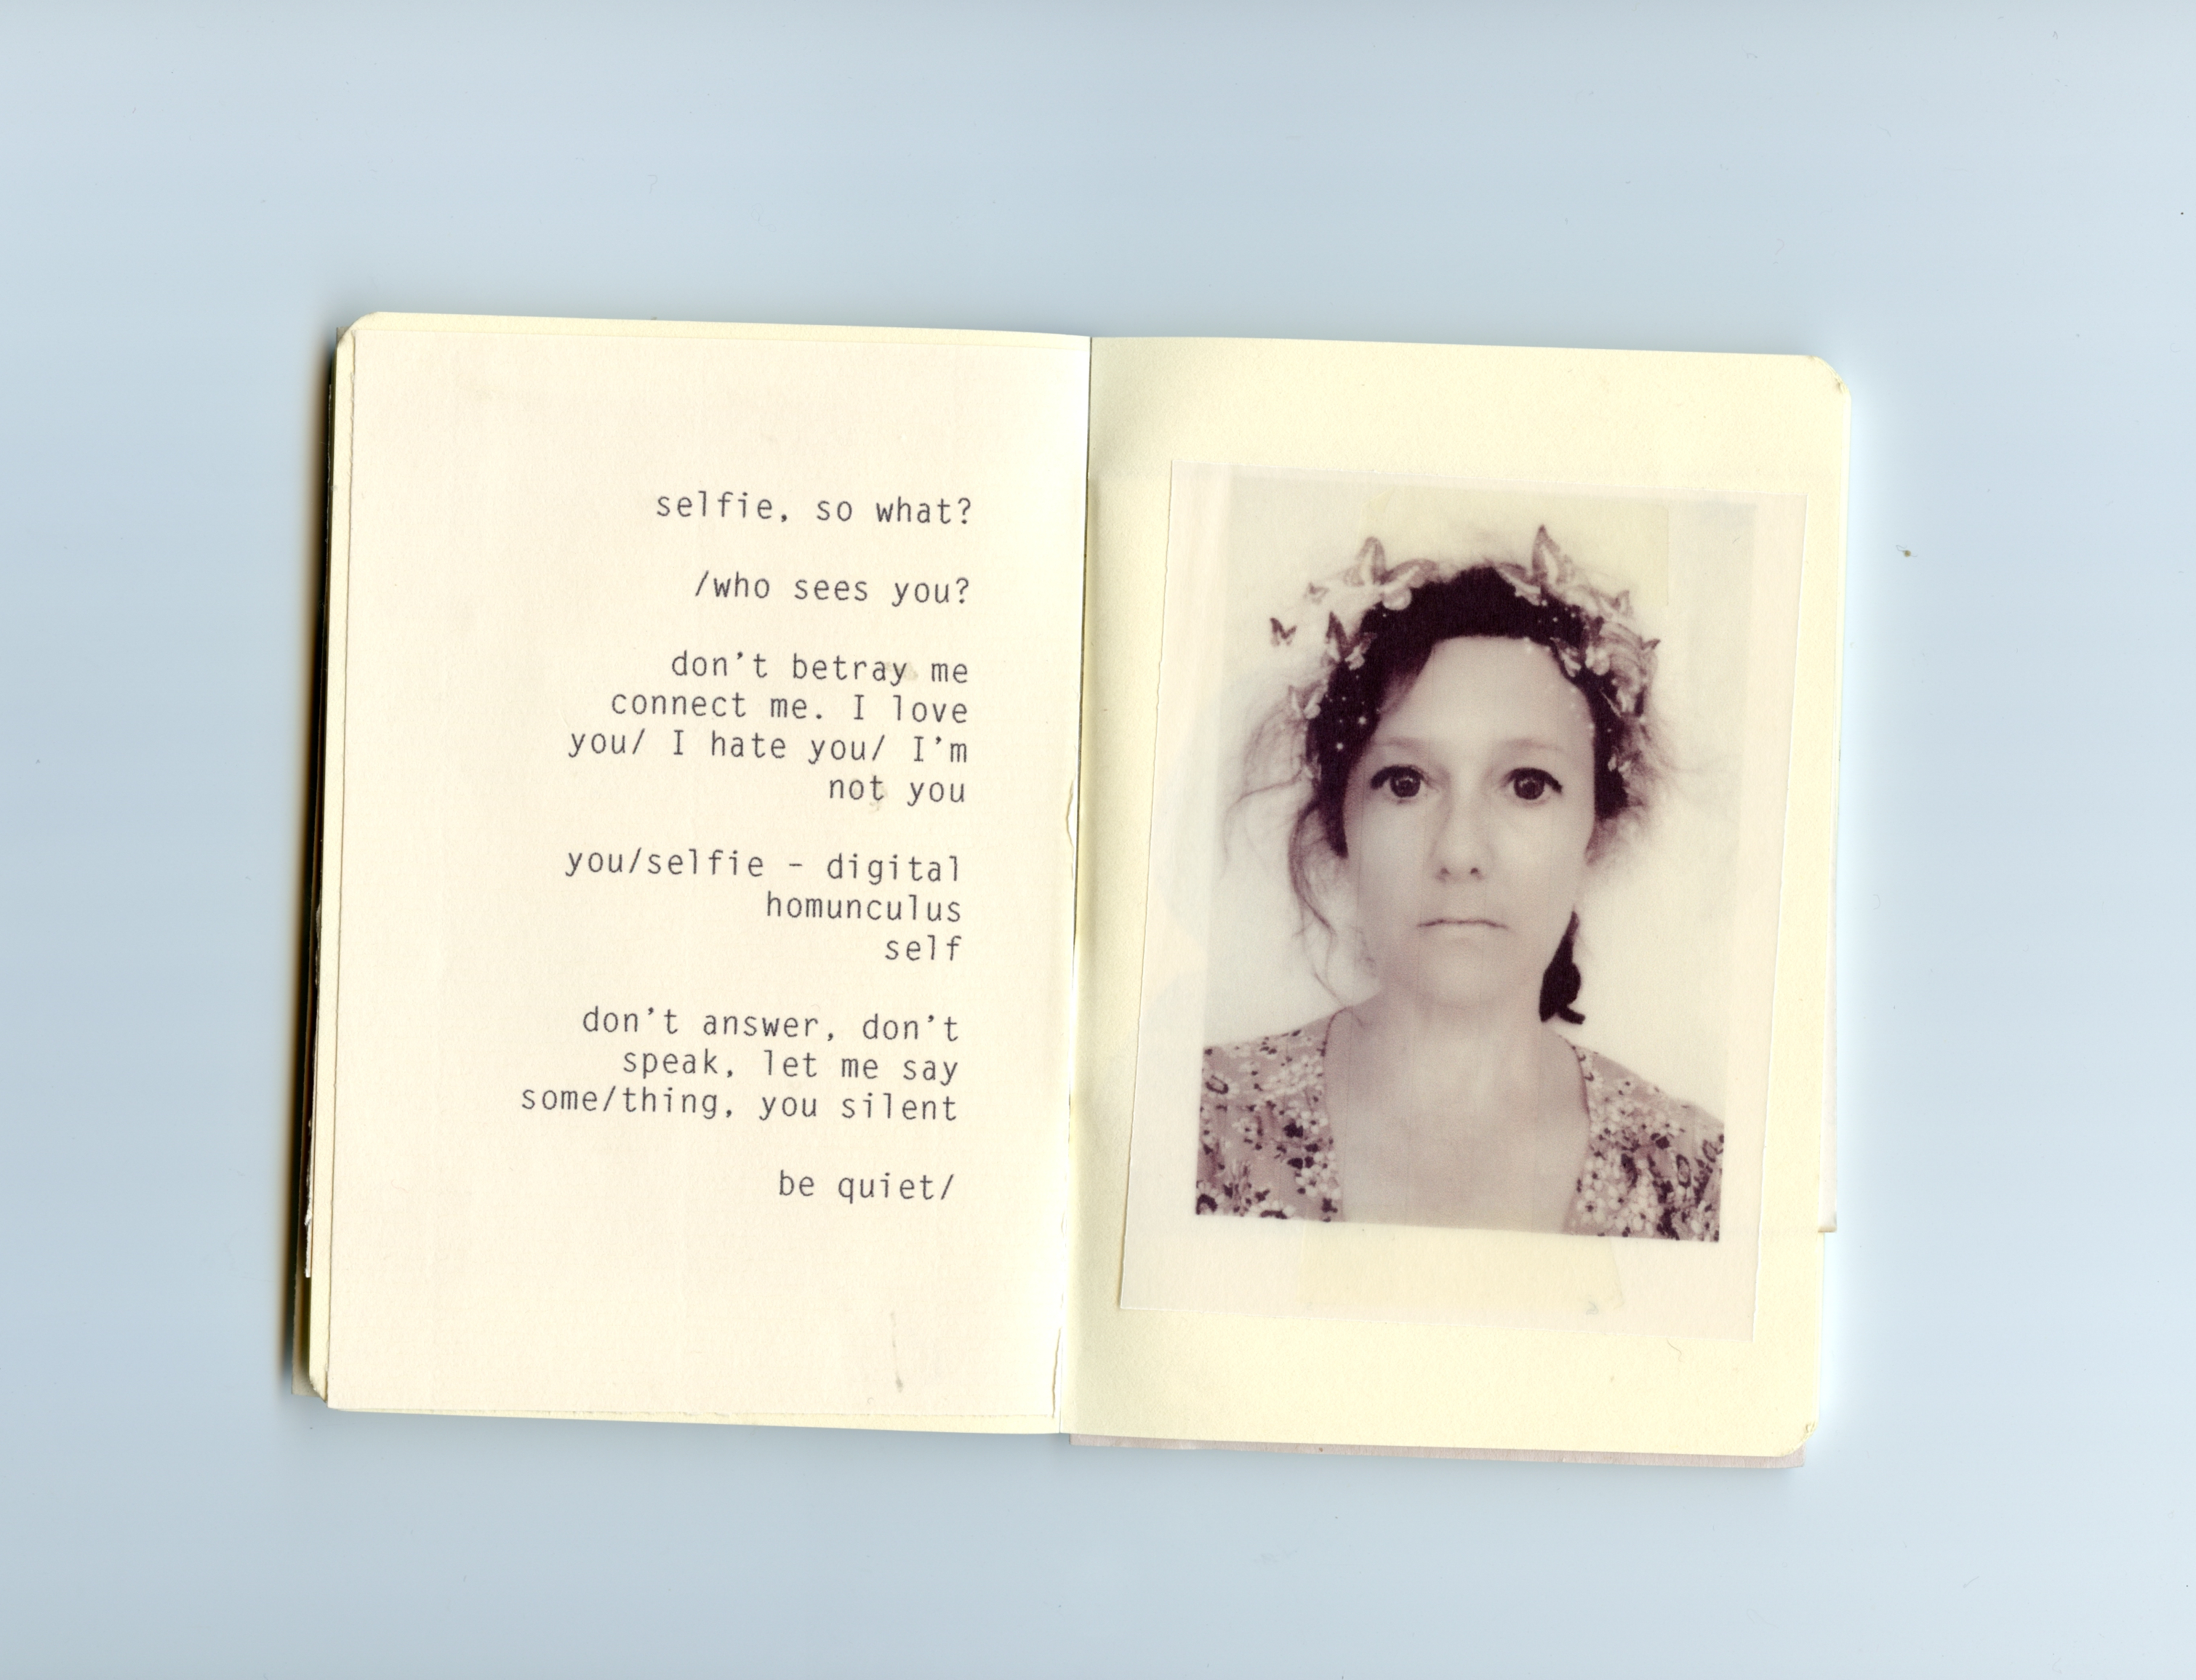 selfie, so what?
/who sees you?
don't betray me
connect me. I love
you/ I hate you/ I'm
not you
you/selfie - digital
homunculus
self
don't answer, don't
speak, let me say
some/thing, you silent
be quiet/